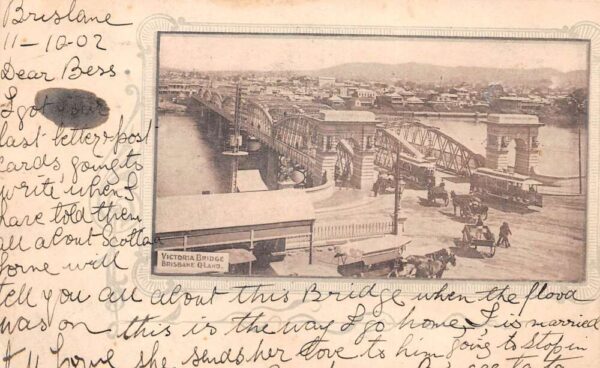 Brisbane
11-10-02
Dear Bess.
I got your
last letter & post
cards, going to
write when I
have told them
all about Scotland
home will
VICTORIA BRIDGE
BRISBANE Q-LAND.
tell you all about this Bridge when the flood
was on this is the way I go home, J. is married
Home she sends her love to him going to stop in